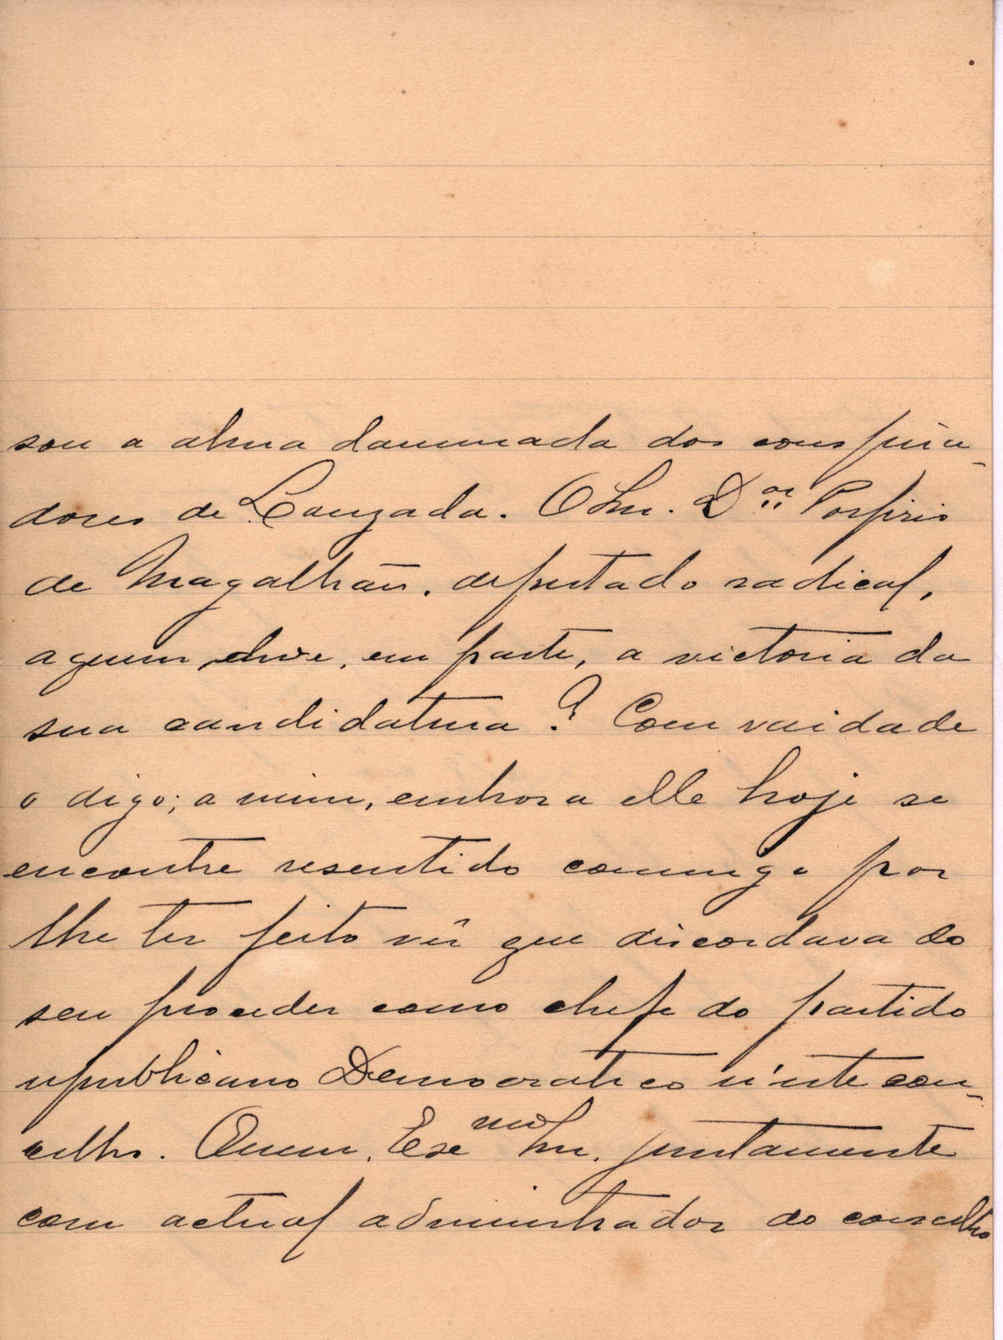 sou a alma damnada dos conspira-
dores de Louzada. O Snr. Dor Porfirio
de Magalhães, deputado radical,
a quem deve, em parte, a victoria da
sua candidatura? Com vaidade
o digo; a mim, embora elle hoje se
encontre resentido commigo por
lhe ter feito vêr que discordava do
seu proceder como chefe do partido
republicano Democratico n'este con-
celho. Quem, Exmo Snr. juntamente
com actual administrador do concelho